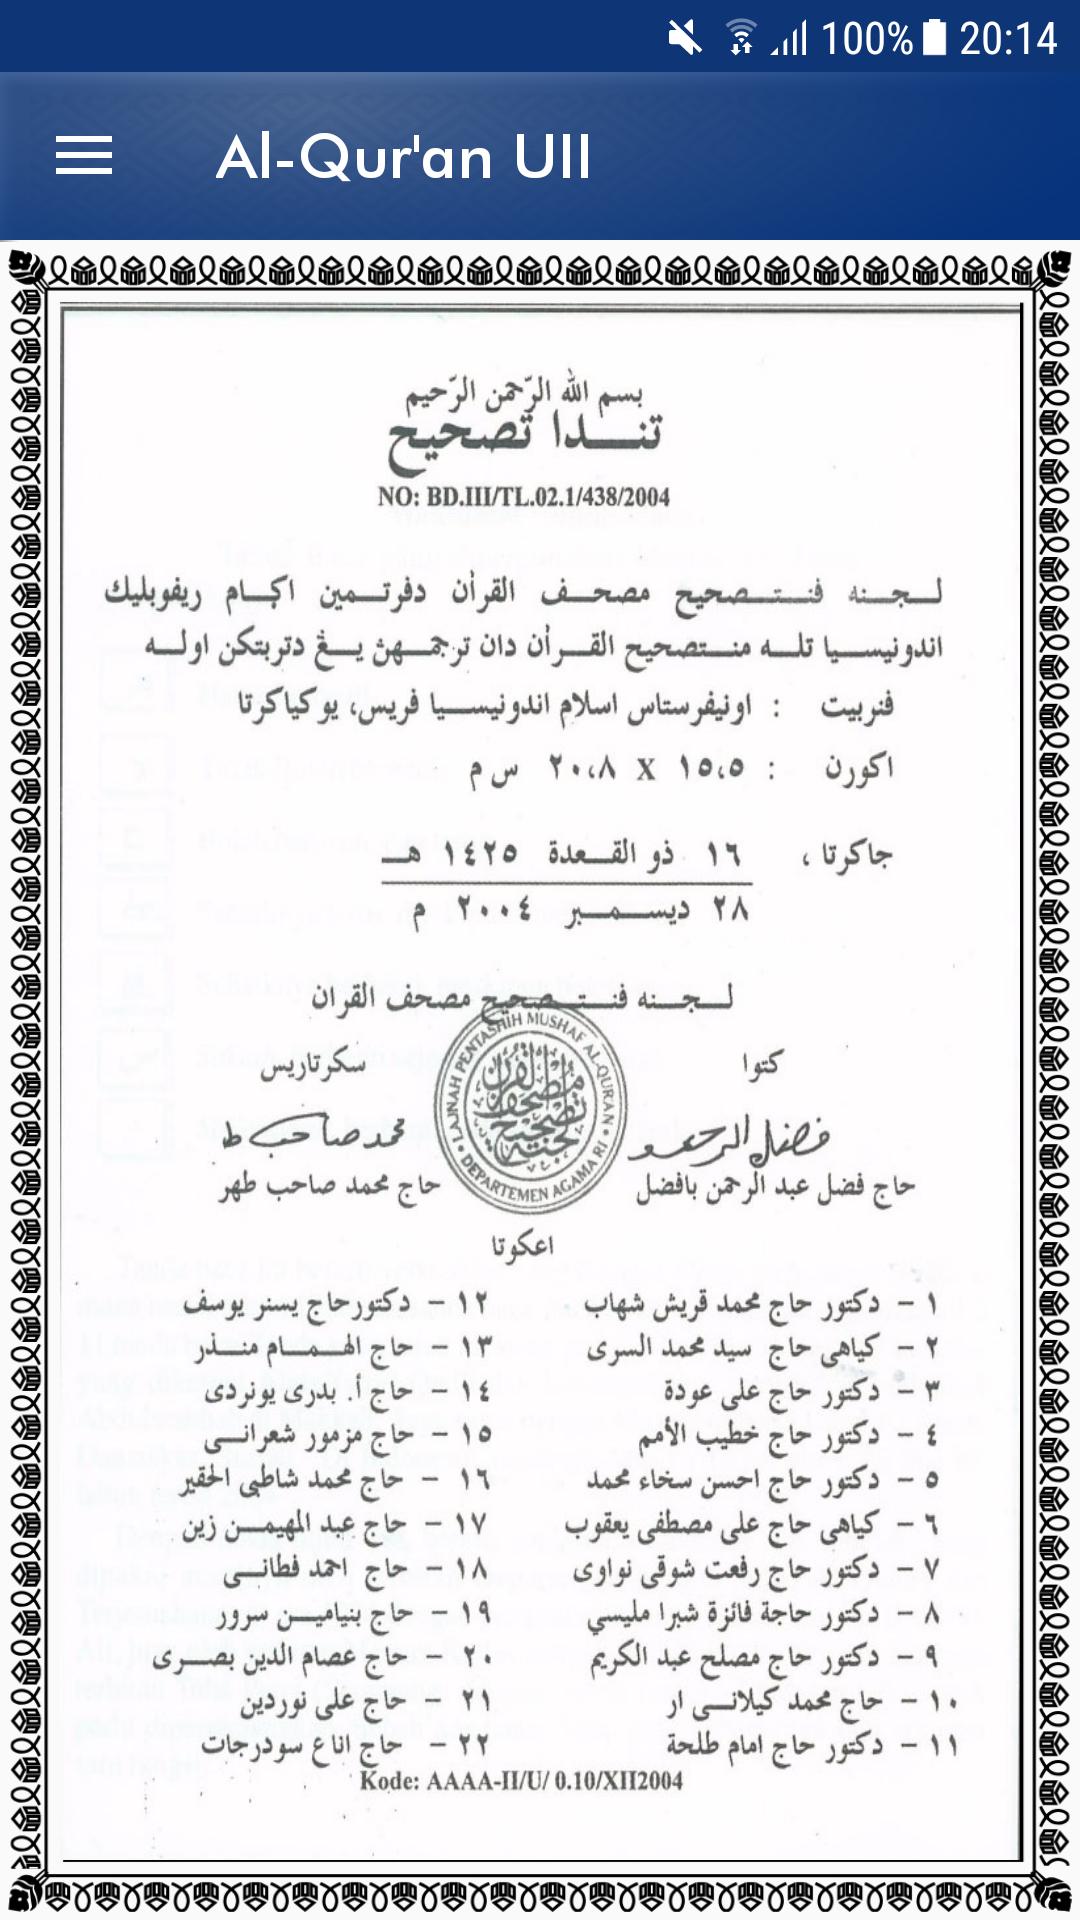 100% 20:14
Al-Qur'an UII
بسم الله الرّحمن الرّحيم
تندا تصحيح
NO: BD.III/TL.02.1/438/2004
لجنه فنتصحيح مصحف القرآن دفرتمين اكام ريفوبليك
اندونيسيا تله منتصحيح القرآن دان ترجمهن يڠ دتربتكن اوله
فنربيت : اونيفرستاس اسلام اندونيسيا فريس، يوكياكرتا
اكورن : ١٥،٥ X ٢٠،٨ س م
جاكرتا ، ١٦ ذو القعدة ١٤٢٥ هـ
٢٨ ديسمبر ٢٠٠٤ م
لجنه فنتصحيح مصحف القران
LAJNAH PENTASHIH MUSHAF AL-QUR'AN
DEPARTEMEN AGAMA RI
كتوا
سكرتاريس
حاج فضل عبد الرحمن بافضل
حاج محمد صاحب طهر
اعكوتا
١ – دكتور حاج محمد قريش شهاب
٢ – كياهى حاج سيد محمد السرى
٣ – دكتور حاج على عودة
٤ – دكتور حاج خطيب الأمم
٥ – دكتور حاج احسن سخاء محمد
٦ – كياهى حاج على مصطفى يعقوب
٧ – دكتور حاج رفعت شوقى نواوى
٨ – دكتور حاجة فائزة شبرا مليسي
٩ – دكتور حاج مصلح عبد الكريم
١٠ – حاج محمد كيلانى ار
١١ – دكتور حاج امام طلحة
١٢ – دكتور حاج يسنر يوسف
١٣ – حاج الهمام منذر
١٤ – حاج أ. بدرى يونردى
١٥ – حاج مزمور شعرانى
١٦ – حاج محمد شاطبى الحقير
١٧ – حاج عبد المهيمن زين
١٨ – حاج احمد فطانى
١٩ – حاج بنيامين سرور
٢٠ – حاج عصام الدين بصرى
٢١ – حاج على نوردين
٢٢ – حاج اناع سودرجات
Kode: AAAA-II/U/ 0.10/XII2004